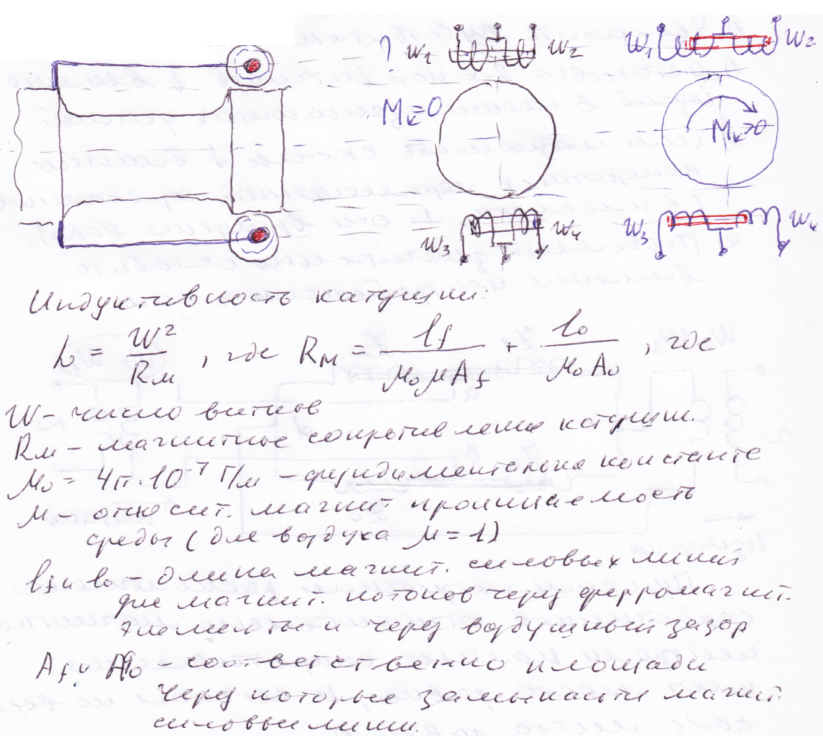 ? W₁ W₂
Mк=0
W₃ W₄
W₁ W₂
Mк>0
W₃ W₄
Индуктивность катушки:
L = W²/Rм , где Rм = lf/(μ₀μAf) + l₀/(μ₀A₀) , где
W - число витков
Rм - магнитное сопротивление катушки.
μ₀ = 4π·10⁻⁷ Г/м - фундаментальная константа
μ - относит. магнит проницаемость
среды (для воздуха μ=1)
lf и l₀ - длина магнит. силовых линий
для магнит. потоков через ферромагнит.
элементы и через воздушный зазор
Af и A₀ - соответственно площади
через которые замыкаются магнит.
силовые линии.